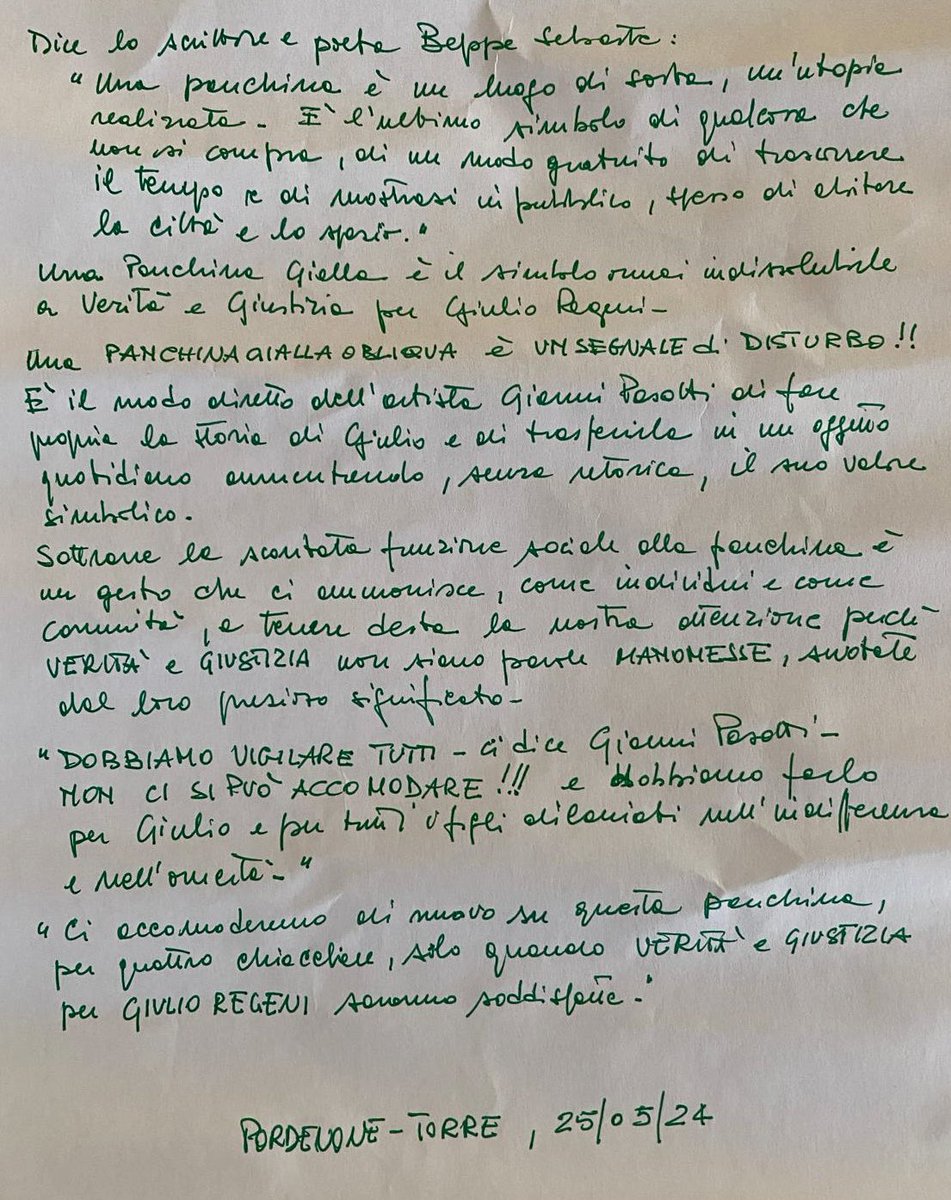 Dice lo scrittore e poeta Beppe Sebaste:
"Una panchina è un luogo di sosta, un'utopia
realizzata - È l'ultimo simbolo di qualcosa che
non si compra, di un modo gratuito di trascorrere
il tempo e di mostrarsi in pubblico, spesso di abitare
la città e lo spazio."
Una Panchina Gialla è il simbolo ormai indissolubile
a Verità e Giustizia per Giulio Regeni -
Una PANCHINA GIALLA OBLIQUA è UN SEGNALE di DISTURBO!!
È il modo diretto dell'artista Gianni Pasotti di fare
propria la storia di Giulio e di trasferirla in un oggetto
quotidiano aumentando, senza retorica, il suo valore
simbolico.
Sottrarre la scontata funzione sociale alla panchina è
un gesto che ci ammonisce, come individui e come
comunità, a tenere desta la nostra attenzione perché
VERITÀ e GIUSTIZIA non siano parole MANOMESSE, svuotate
dal loro prezioso significato -
"DOBBIAMO VIGILARE TUTTI - ci dice Gianni Pasotti -
NON CI SI PUÒ ACCOMODARE!!! e dobbiamo farlo
per Giulio e per tutti i figli dilaniati nell'indifferenza
e nell'omertà - "
"Ci accomoderemo di nuovo su questa panchina,
per quattro chiacchiere, solo quando VERITÀ e GIUSTIZIA
per GIULIO REGENI saranno soddisfatte."
PORDENONE - TORRE, 25/05/24